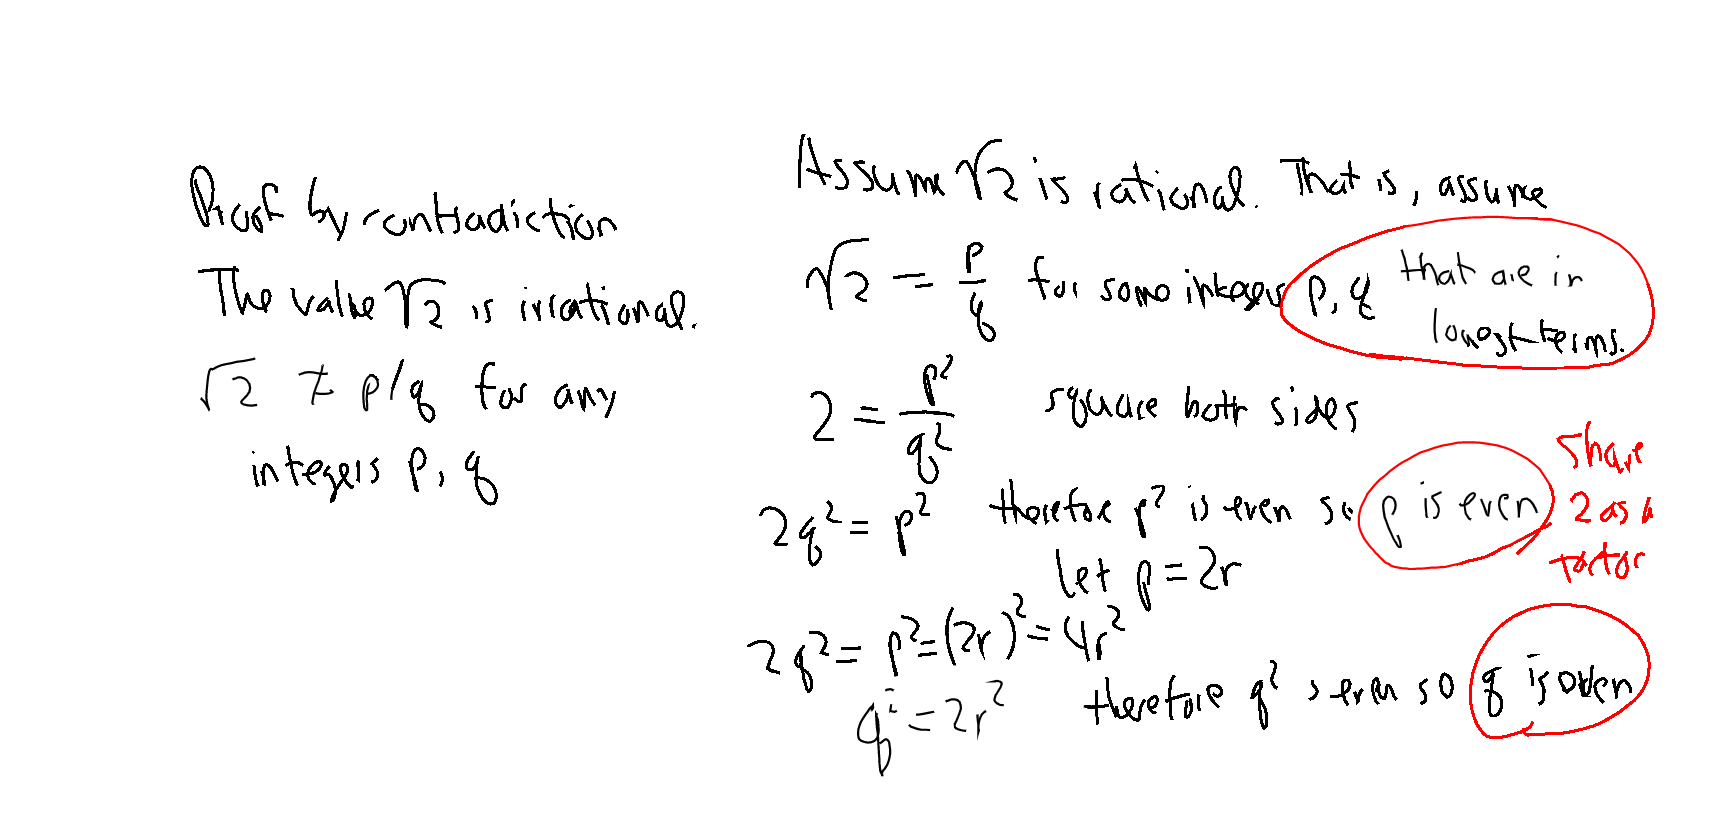 Proof by contradiction
The value √2 is irrational.
√2 ≠ p/q for any
integers p, q
Assume √2 is rational. That is, assume
√2 = p/q for some integers p, q that are in
lowest terms.
2 = p²/q² square both sides
2q² = p² therefore p² is even so p is even
Share
2 as a
factor
let p = 2r
2q² = p² = (2r)² = 4r²
q² = 2r² therefore q² is even so q is even